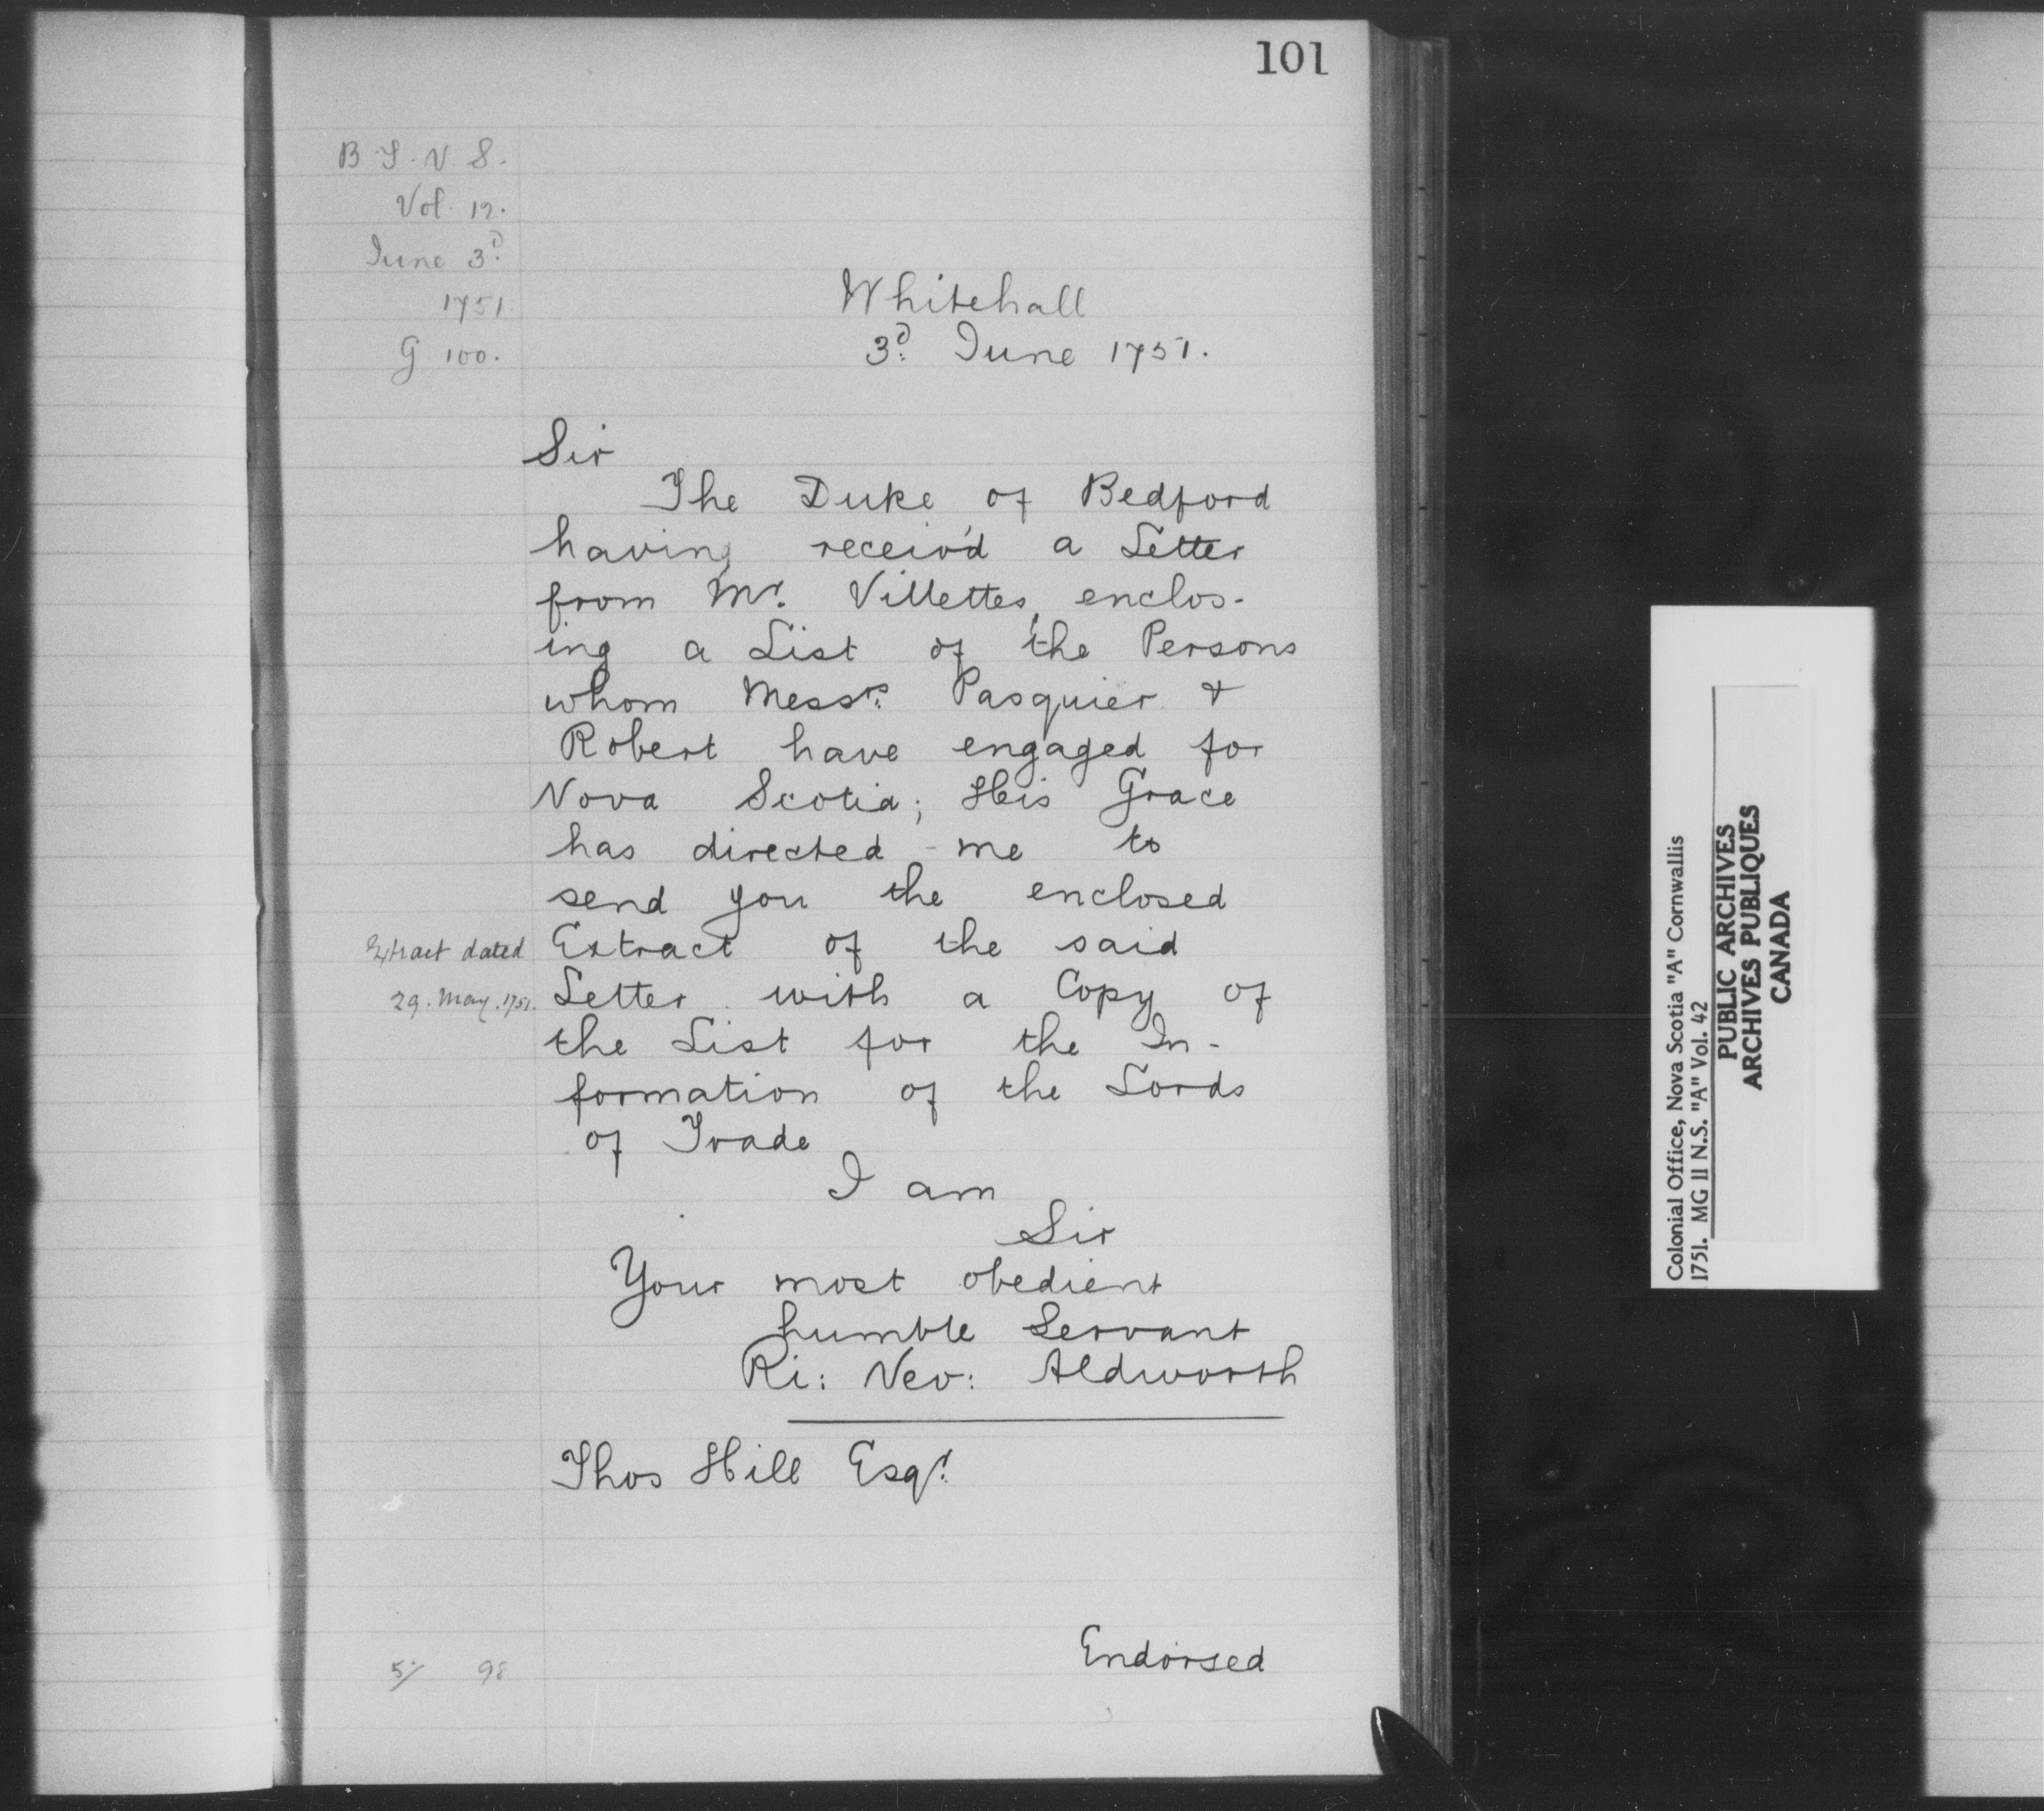 101
B.T.N.S.
Vol. 12.
June 3d.
1751
G 100.
Whitehall
3d. June 1751.
Sir
The Duke of Bedford
having receiv'd a Letter
from Mr. Villettes, enclos-
ing a List of the Persons
whom Messrs. Pasquier &
Robert have engaged for
Nova Scotia; His Grace
has directed me to
send you the enclosed
Extract dated
29. May. 1751.
Extract of the said
Letter with a Copy of
the List for the In-
formation of the Lords
of Trade
I am
Sir
Your most obedient
humble Servant
Ri: Nev: Aldworth
Thos Hill Esqr.
Endorsed
98
Colonial Office, Nova Scotia "A" Cornwallis
1751. MG 11 N.S. "A" Vol. 42
PUBLIC ARCHIVES
ARCHIVES PUBLIQUES
CANADA